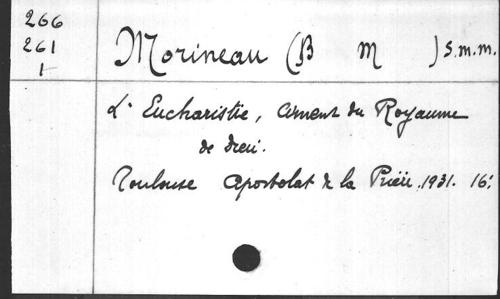 266
261
1
Morineau (B M ) S.m.m.
L'Eucharistie, ciment du Royaume
de Dieu.
Toulouse Apostolat de la Prière. 1931. 16°